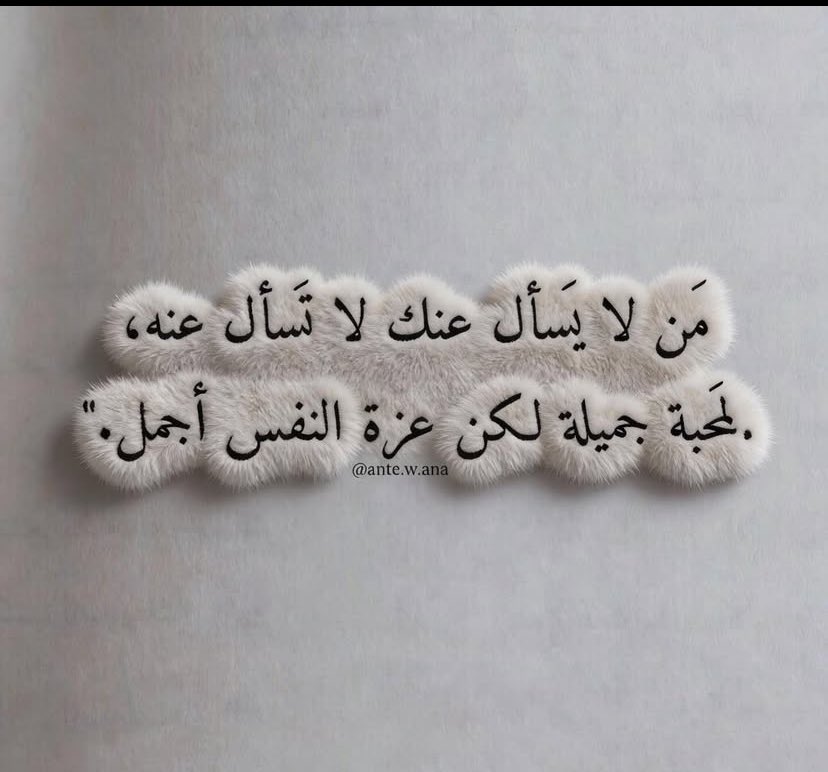 مَن لا يَسأل عنك لا تَسأل عنه،
.لمَحبة جميلة لكن عزة النفس أجمل."
@ante.w.ana